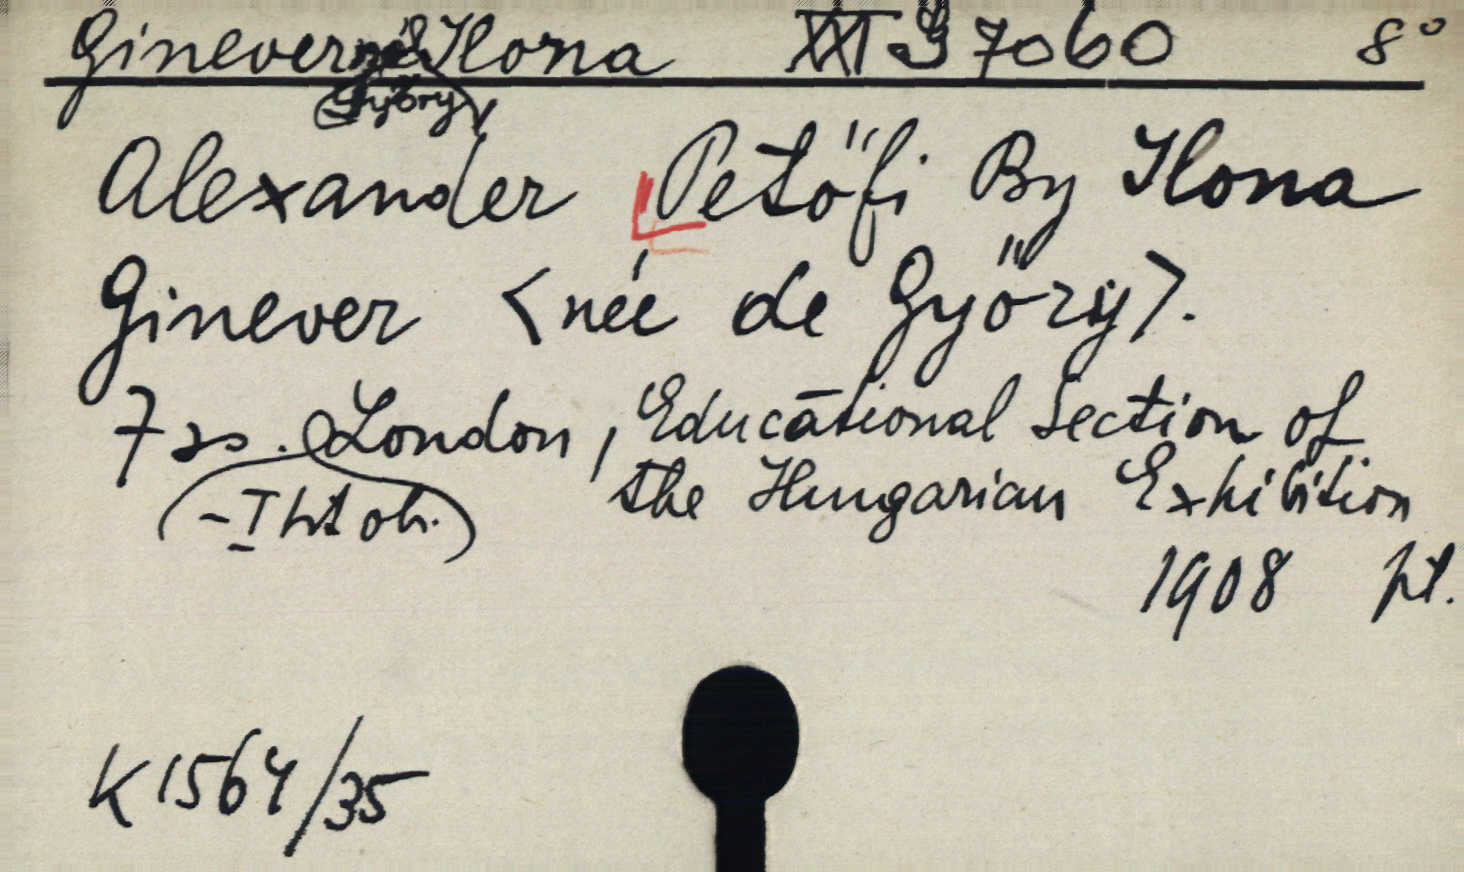 Gineverné Ilona XXI 7060 8°
(Győry)
Alexander Petőfi By Ilona
Ginever <née de Győry>.
7 sz. London, Educational Section of
- I ht ol. the Hungarian Exhibition
1908 pt.
K 1564/35